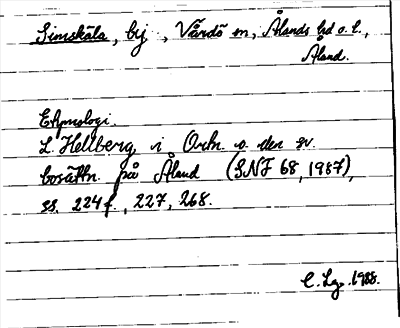 Simskäla, by, Vårdö sn, Ålands hd o. l.,
Åland.
Etymologi.
L. Hellberg i Ortn. o. den sv.
bosättn. på Åland (SNF 68, 1987),
ss. 224 f., 227, 268.
C. Lg. 1988.